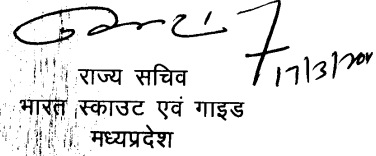 17/3/201
राज्य सचिव
भारत स्काउट एवं गाइड
मध्यप्रदेश